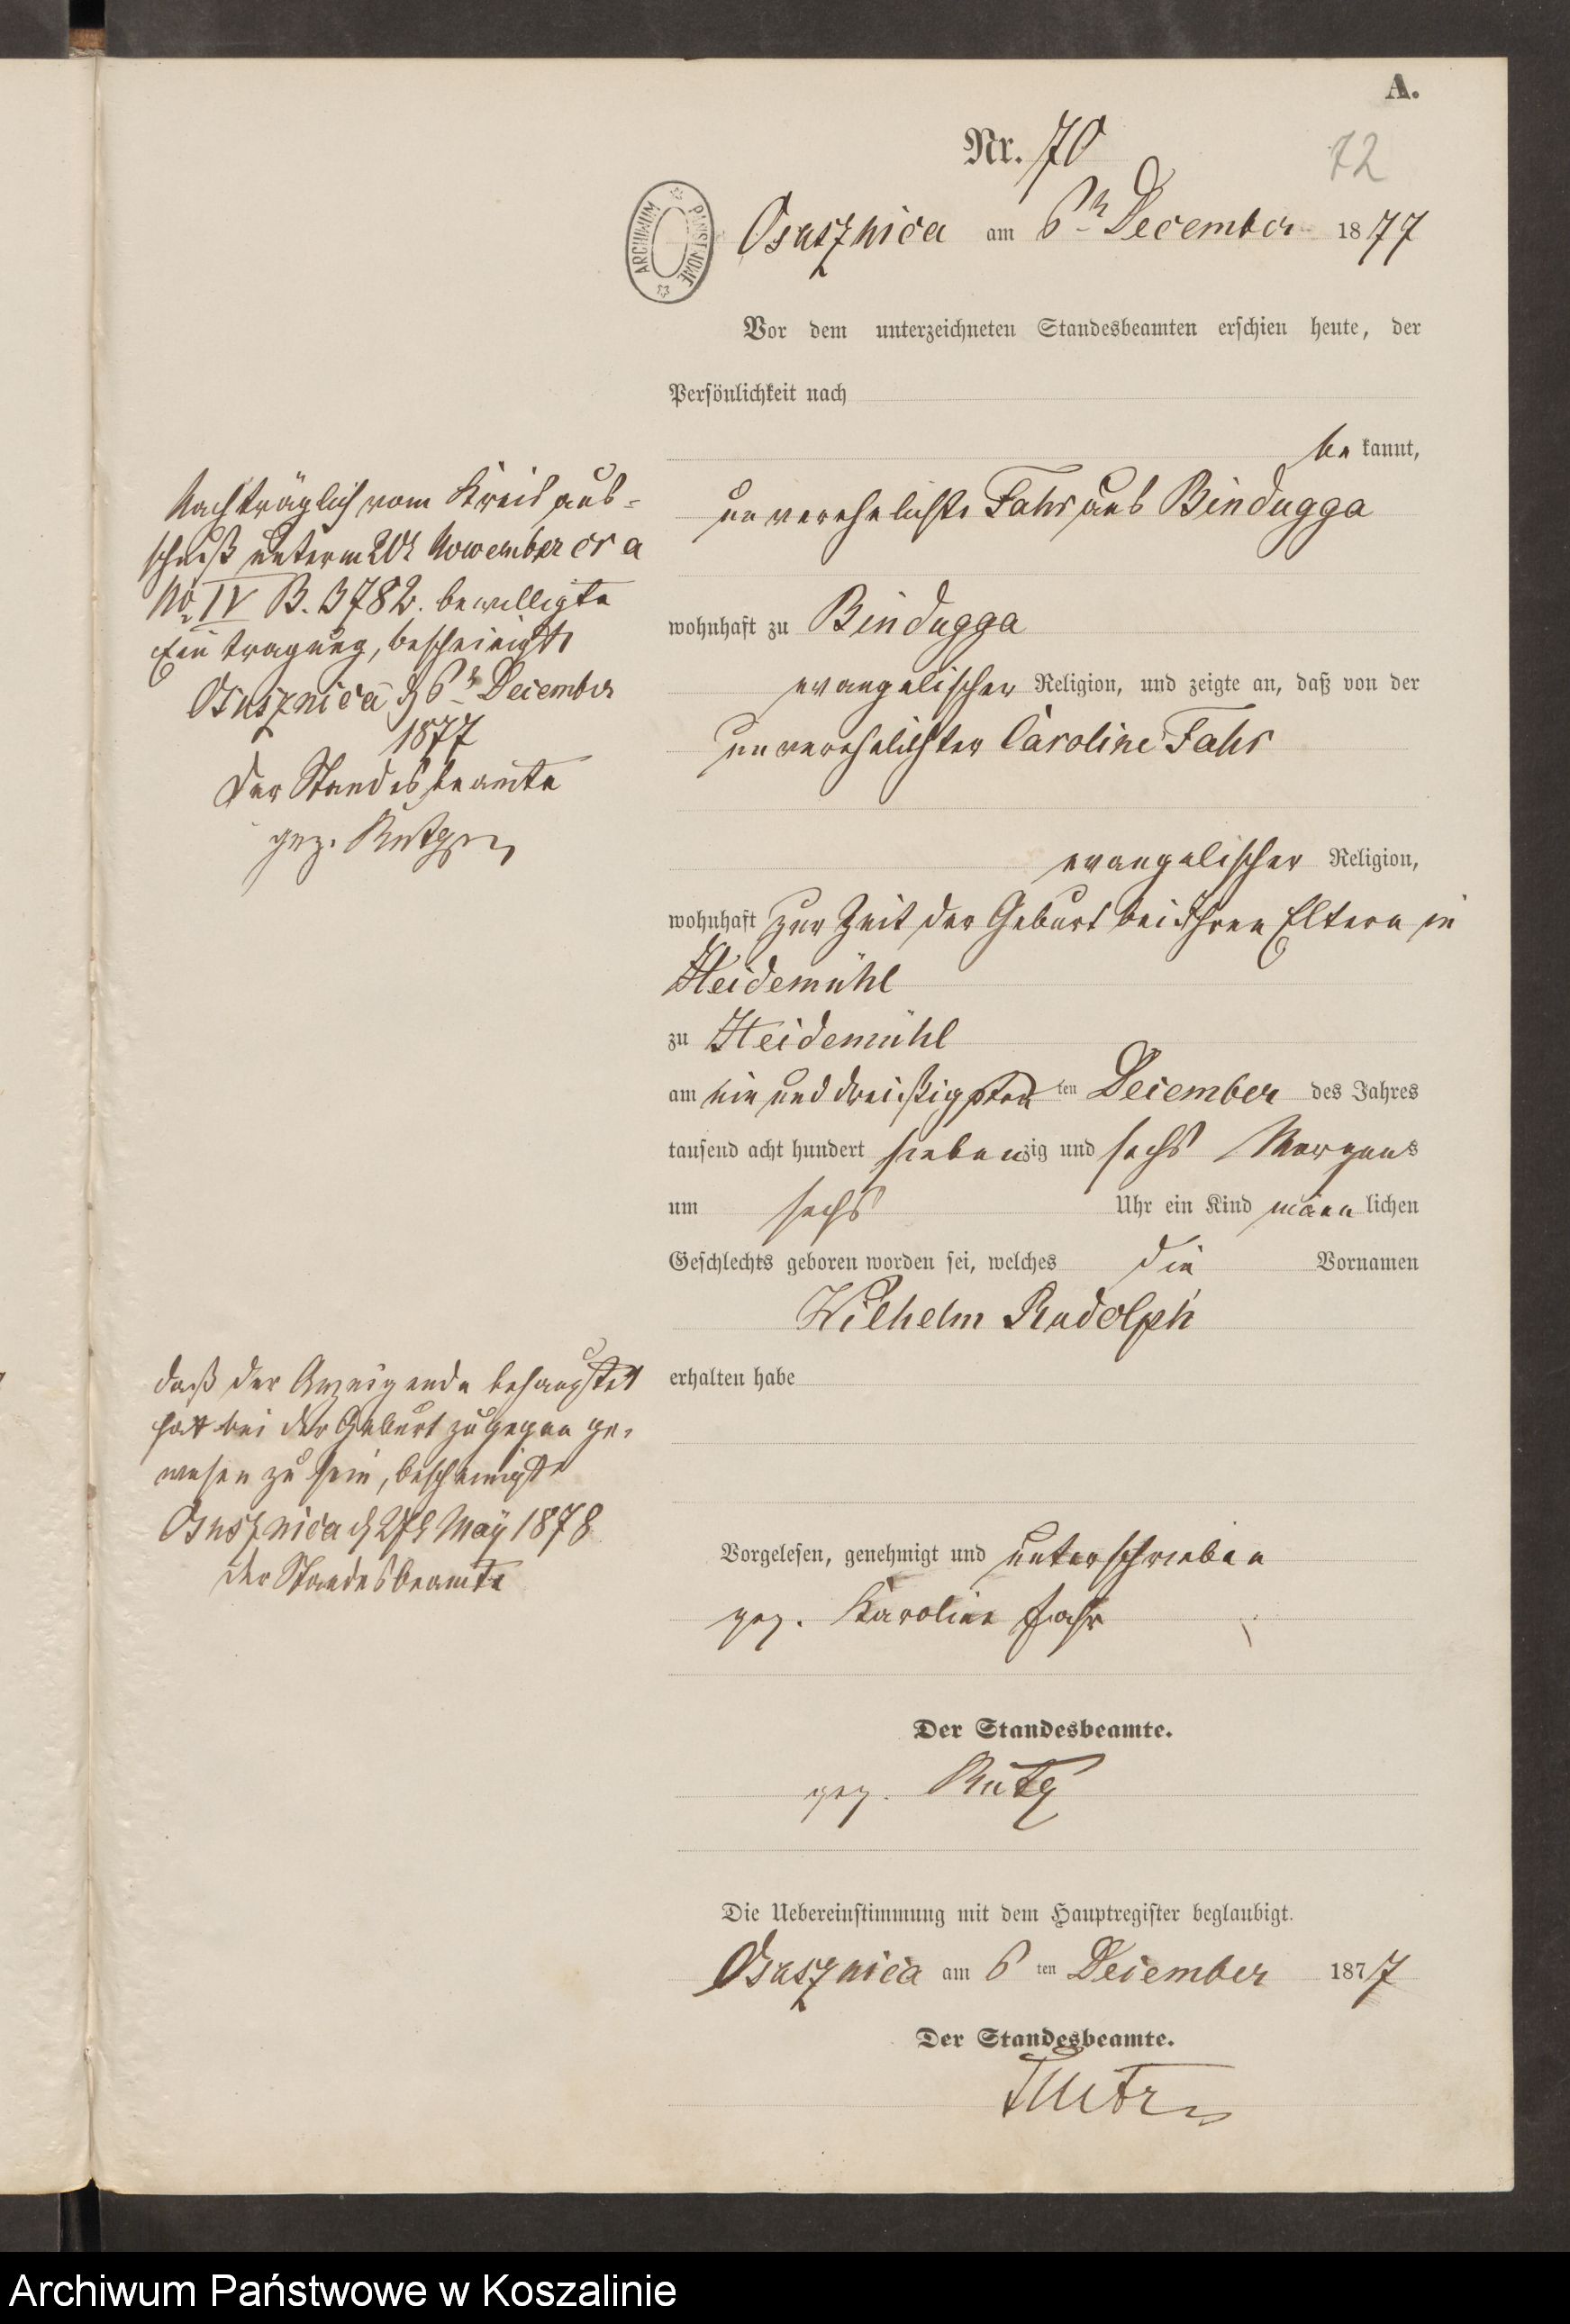 A.
Nr. 70
72
ARCHIWUM PAŃSTWOWE
Osusznica am 6ten December 1877
Vor dem unterzeichneten Standesbeamten erschien heute, der
Persönlichkeit nach
be kannt,
unverehelichte Fahr aus Bindugga
wohnhaft zu Bindugga
evangelischer Religion, und zeigte an, daß von der
unverehelichten Caroline Fahr
evangelischer Religion,
wohnhaft zur Zeit der Geburt bei Ihren Eltern in
Heidemühl
zu Heidemühl
am ein und dreißigsten ten December des Jahres
tausend acht hundert siebenzig und sechs Morgens
um sechs Uhr ein Kind männ lichen
Geschlechts geboren worden sei, welches die Vornamen
Wilhelm Rudolph
erhalten habe
Vorgelesen, genehmigt und unterschrieben
gez. Karoline Fahr
Der Standesbeamte.
gez.
Die Uebereinstimmung mit dem Hauptregister beglaubigt.
Osusznica am 6 ten December 1877
Der Standesbeamte.
Nachträglich vom Kreis aus-
schuß unterm November cr a
No IV B. 3782. bewilligte
Eintragung, bescheinigt
Osusznica d 6ten December
1877
Der Standesbeamte
gez.
daß der Anzeigende behauptet
hat bei der Geburt zugegen ge-
wesen zu sein, bescheinigt
Osusznica d 27t May 1878
Der Standesbeamte
Archiwum Państwowe w Koszalinie